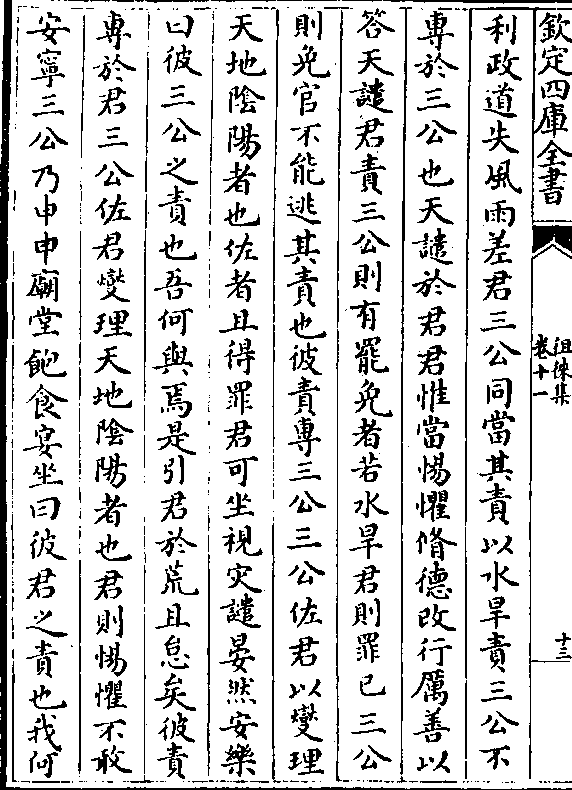 欽定四庫全書
徂徠集
卷十一
十三
利政道失風雨差君三公同當其責以水旱責三公不
專於三公也天譴於君君惟當惕懼脩德改行厲善以
答天譴君責三公則有罷免者若水旱君則罪已三公
則免官不能逃其責也彼責專三公三公佐君以燮理
天地隂陽者也佐者且得罪君可坐視灾譴晏然安樂
曰彼三公之責也吾何與焉是引君於荒且怠矣彼責
專於君三公佐君燮理天地隂陽者也君則惕懼不敢
安寧三公乃申申廟堂飽食宴坐曰彼君之責也我何